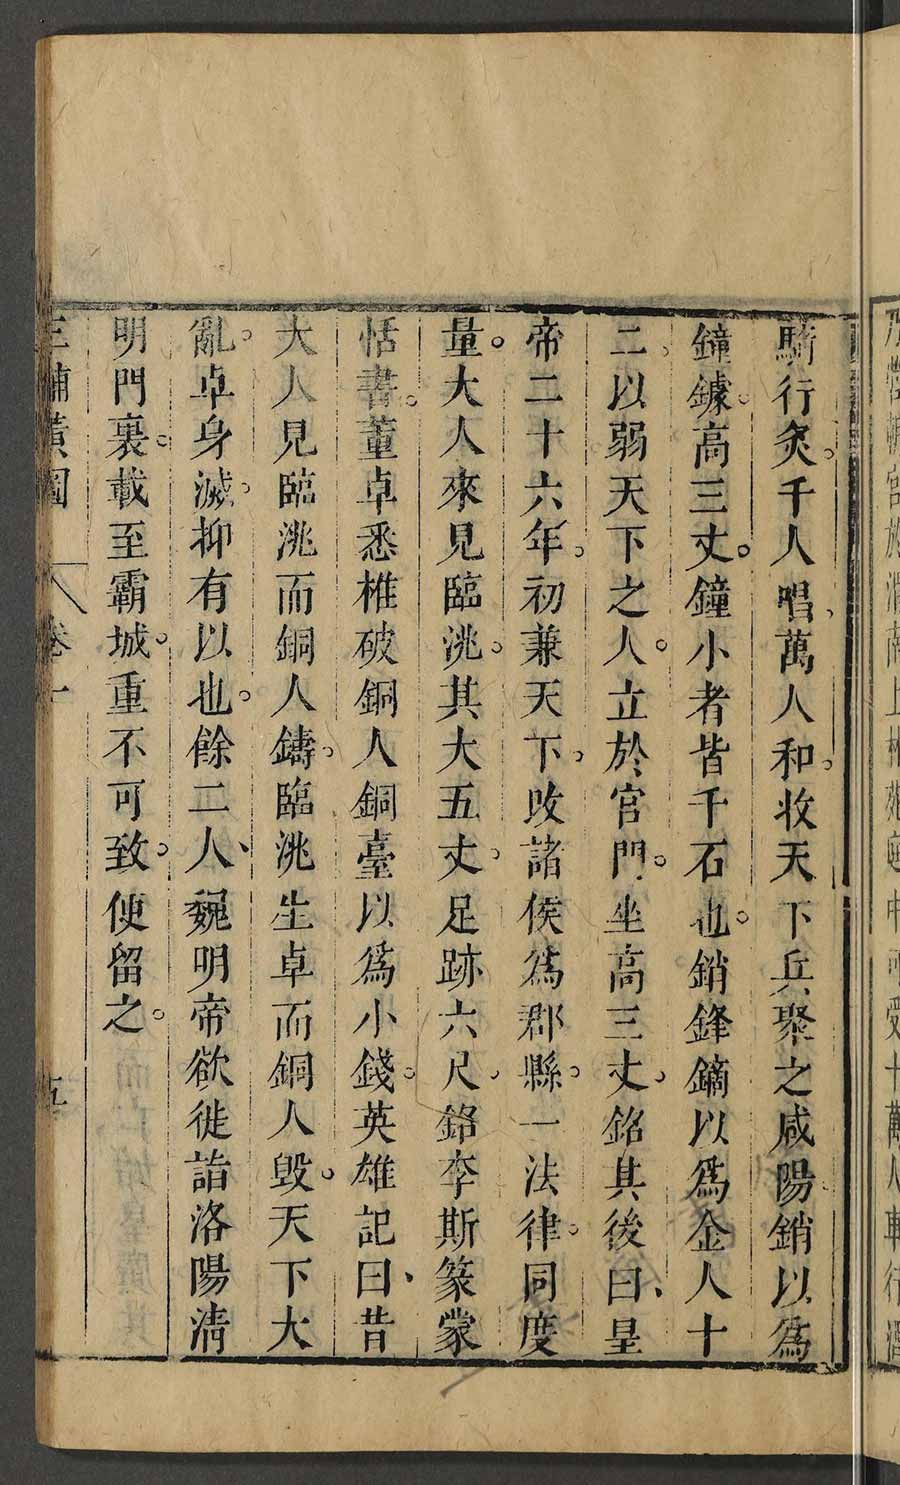 乃營朝宮於渭南上林苑庭中可受十萬人車行酒
騎行炙千人唱萬人和收天下兵聚之咸陽銷以為
鐘鐻高三丈鐘小者皆千石也銷鋒鏑以爲金人十
二以弱天下之人立於宮門坐高三丈銘其後曰皇
帝二十六年初兼天下改諸侯爲郡縣一法律同度
量大人來見臨洮其大五丈足跡六尺銘李斯篆蒙
恬書董卓悉椎破銅人銅臺以爲小錢英雄記曰昔
大人見臨洮而銅人鑄臨洮生卓而銅人毁天下大
亂卓身滅抑有以也餘二人魏明帝欲徙詣洛陽清
明門裏載至霸城重不可致便留之
三輔黃圖 卷一 五